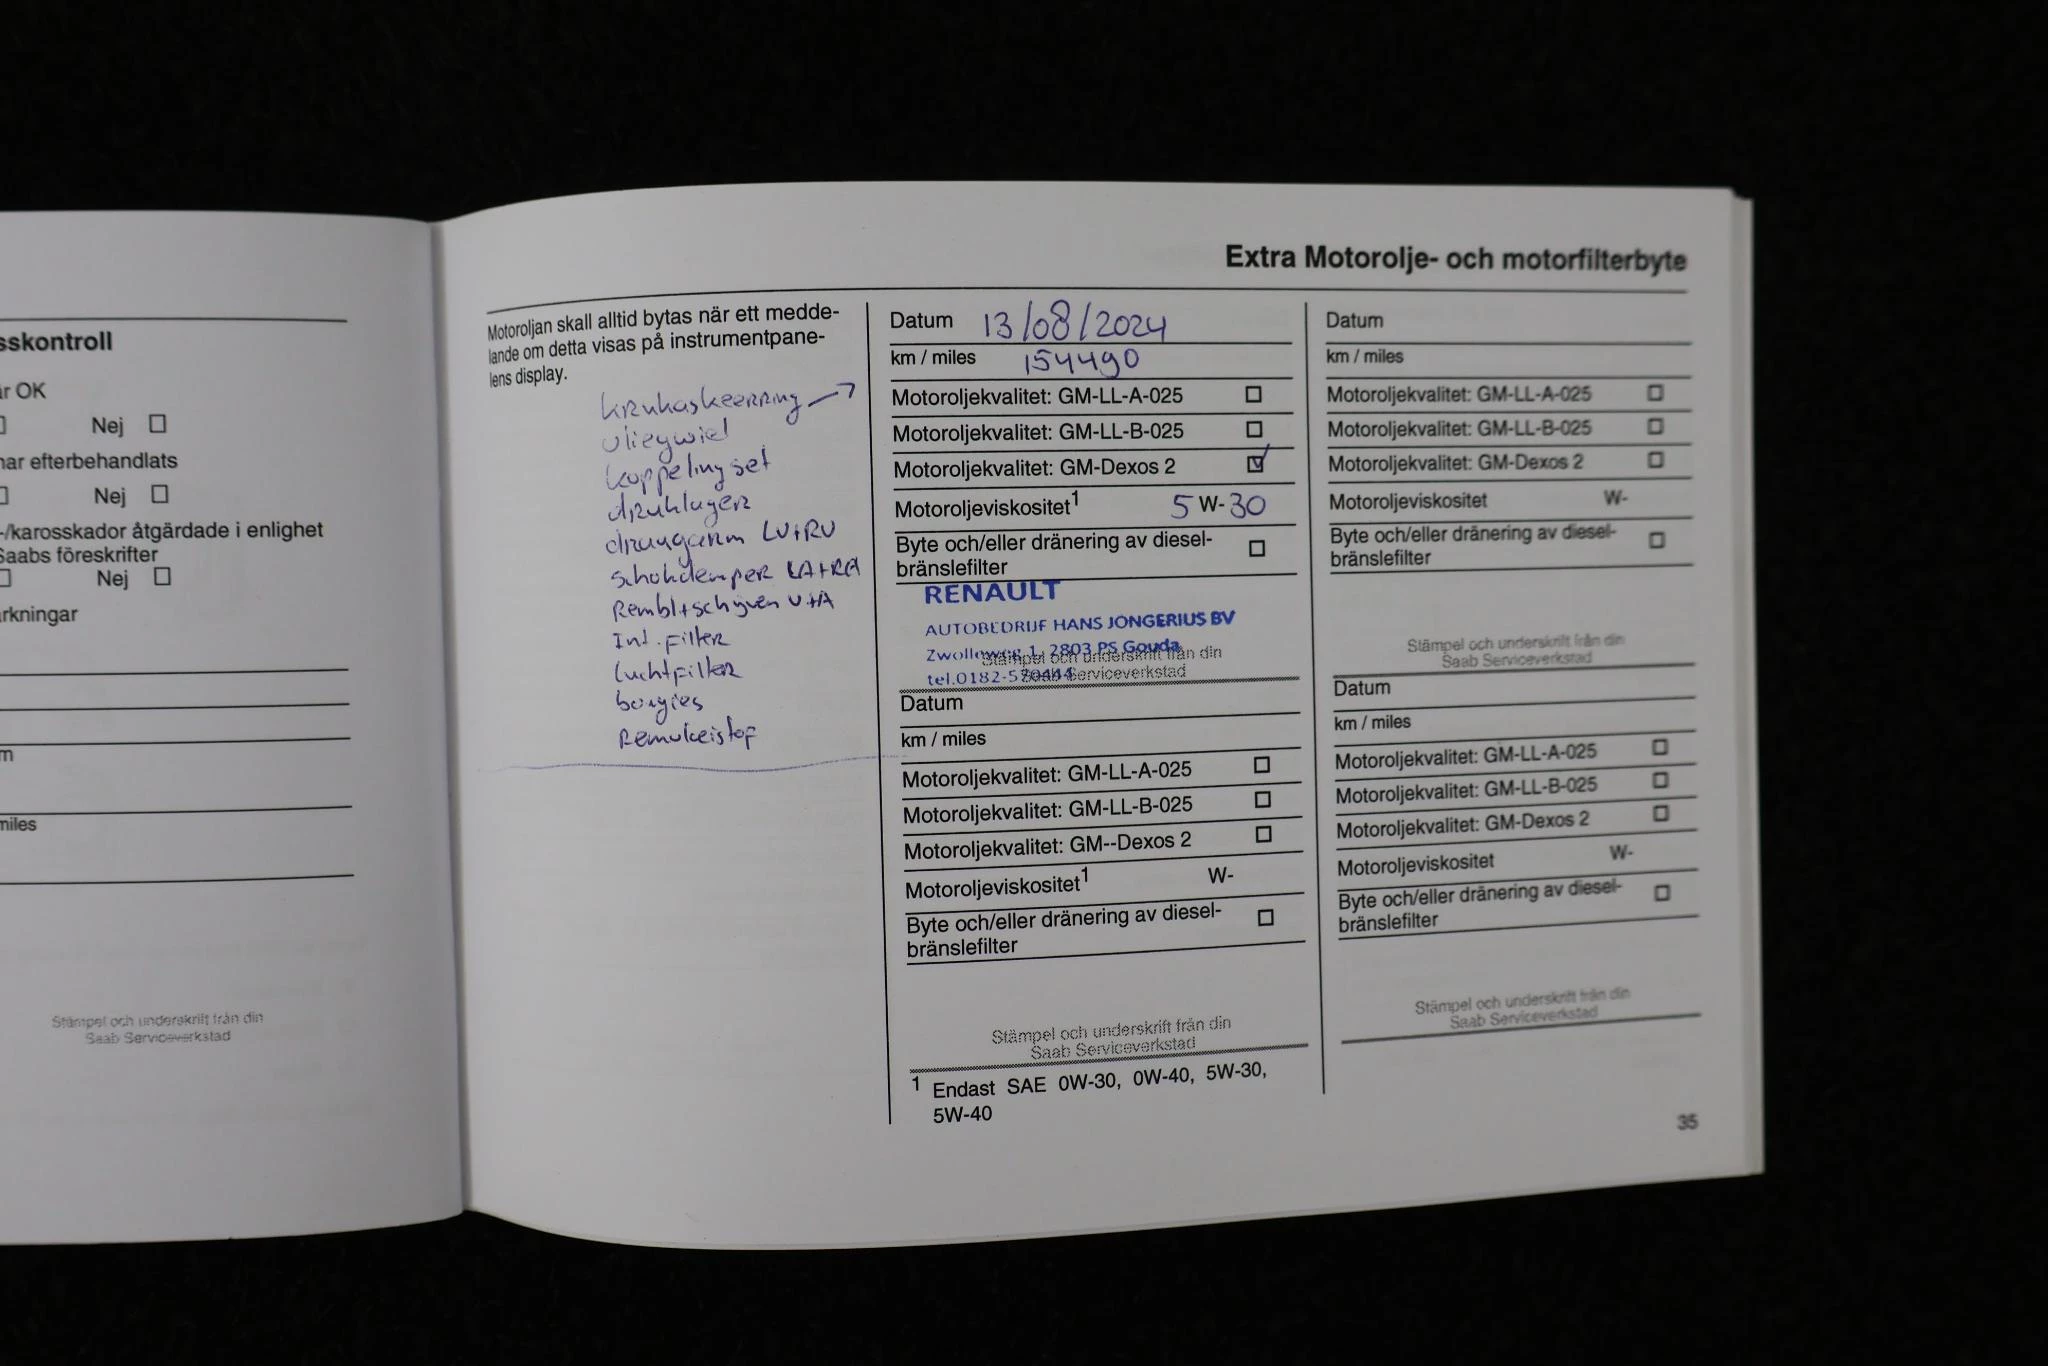 sskontroll
är OK
Nej
har efterbehandlats
Nej
-/karosskador åtgärdade i enlighet
Saabs föreskrifter
Nej
arkningar
m
miles
Stämpel och underskrift från din
Saab Serviceverkstad
Extra Motorolje- och motorfilterbyte
Motoroljan skall alltid bytas när ett medde-
lande om detta visas på instrumentpane-
lens display.
krukaskeerring →
vliegwiel
koppeling set
druklager
draagarm LV+RV
schokdemper LA+RA
Rembl+schijven V+A
Int. Filter
luchtfilter
bougies
Remvloeistof
Datum 13/08/2024
km / miles 154490
Motoroljekvalitet: GM-LL-A-025
Motoroljekvalitet: GM-LL-B-025
Motoroljekvalitet: GM-Dexos 2
Motoroljeviskositet1 5 W-30
Byte och/eller dränering av diesel-
bränslefilter
RENAULT
AUTOBEDRIJF HANS JONGERIUS BV
Zwolleweg 1, 2803 PS Gouda
tel.0182-570444
Stämpel och underskrift från din
Saab Serviceverkstad
Datum
km / miles
Motoroljekvalitet: GM-LL-A-025
Motoroljekvalitet: GM-LL-B-025
Motoroljekvalitet: GM--Dexos 2
Motoroljeviskositet1 W-
Byte och/eller dränering av diesel-
bränslefilter
Stämpel och underskrift från din
Saab Serviceverkstad
1 Endast SAE 0W-30, 0W-40, 5W-30,
5W-40
Datum
km / miles
Motoroljekvalitet: GM-LL-A-025
Motoroljekvalitet: GM-LL-B-025
Motoroljekvalitet: GM-Dexos 2
Motoroljeviskositet W-
Byte och/eller dränering av diesel-
bränslefilter
Stämpel och underskrift från din
Saab Serviceverkstad
Datum
km / miles
Motoroljekvalitet: GM-LL-A-025
Motoroljekvalitet: GM-LL-B-025
Motoroljekvalitet: GM-Dexos 2
Motoroljeviskositet W-
Byte och/eller dränering av diesel-
bränslefilter
Stämpel och underskrift från din
Saab Serviceverkstad
35